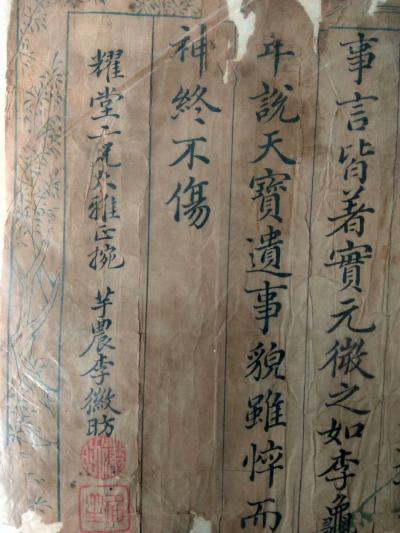 事言皆著實元微之如李龜
年說天寶遺事貌雖悴而
神終不傷
耀堂二兄大雅正捥
芋農李徽昉